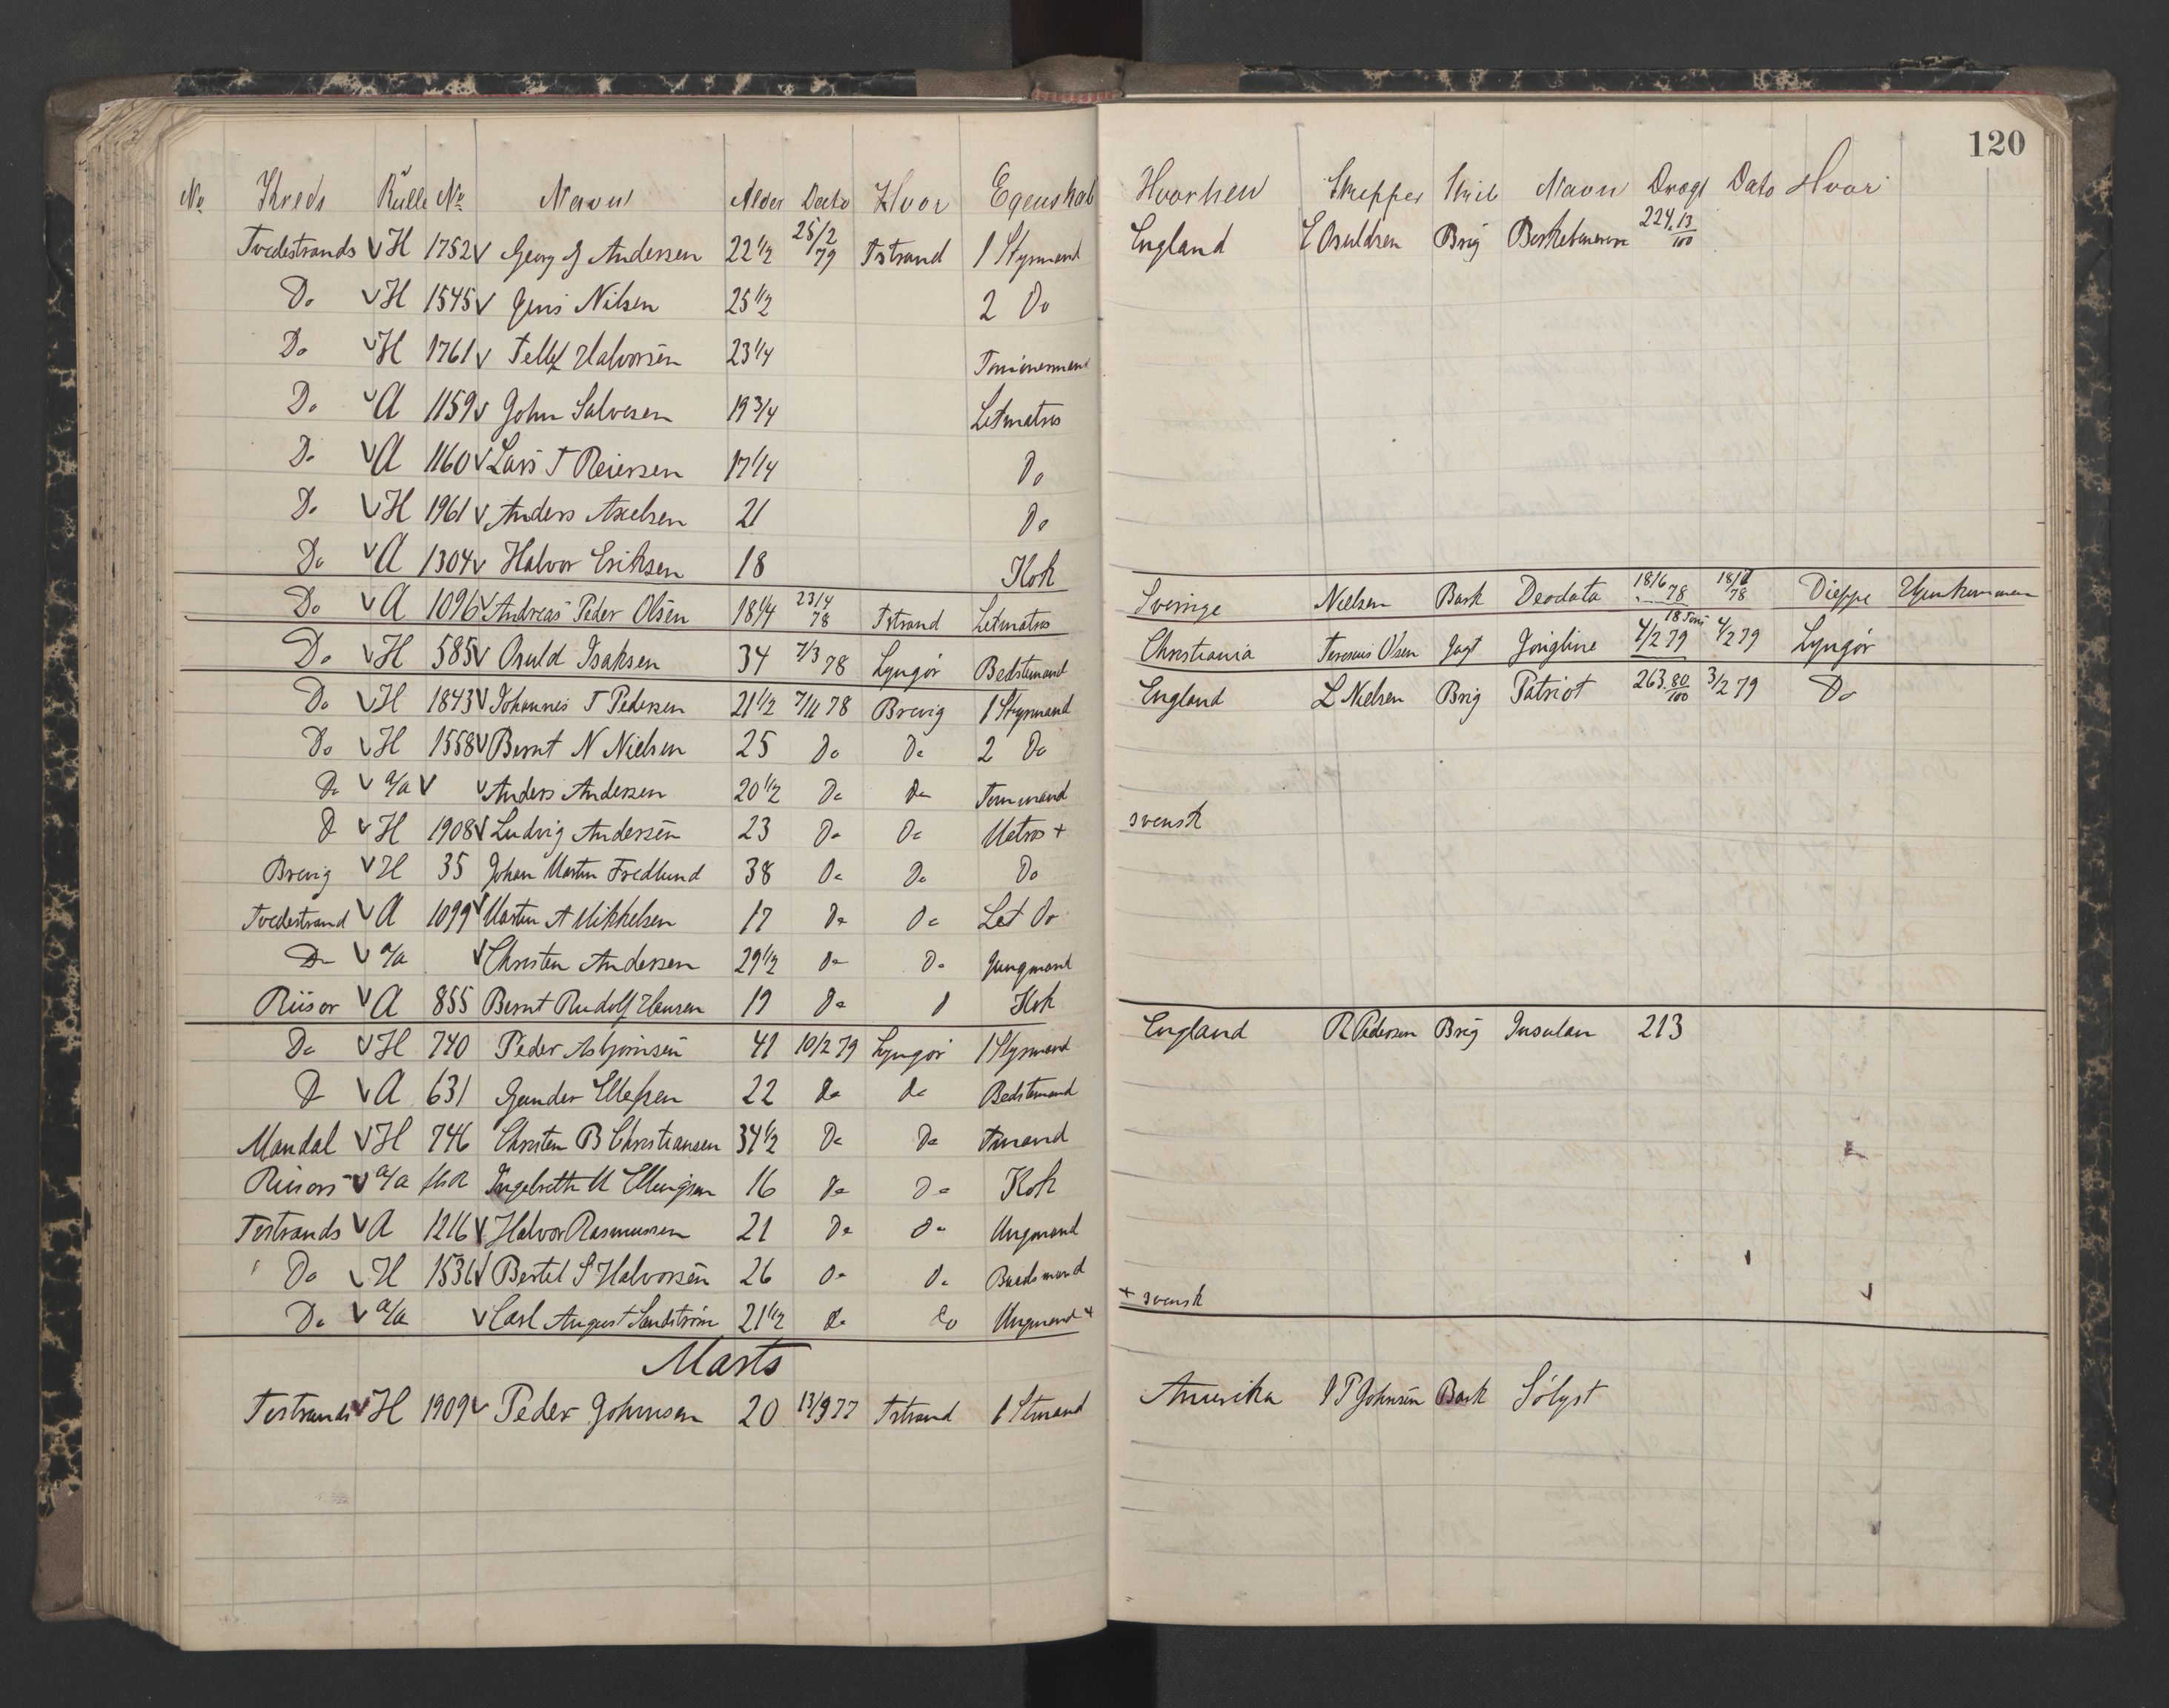 120
No Kreds Rulle No Navn Alder Dato Hvor Egenskab Hvorhen Skipper Navn Drægt Dato Hvor
Tvedestrands H 1752 Georg J Andersen 22 1/2 25/2 79 Tstrand 1 Styrmand England E Osuldsen Brig 224 13/100
Do H 1545 Jens Nilsen 25 1/2 2 Do
Do H 1761 Tellef Halvorsen 23 1/4 Tømmermand
Do A 1159 John Salvesen 19 3/4 Letmatros
Do A 1160 Lars T Reiersen 17 1/4 Do
Do H 1961 Anders Axelsen 21 Do
Do A 1304 Halvor Eriksen 18 Kok
Do A 1096 Andreas Peder Olsen 18 1/4 23/4 78 Tstrand Letmatros Sverige Nielsen Bark Deodata 18/6 78 78 Dieppe Hjemkommen
Do H 585 Osuld Isaksen 34 7/3 78 Lyngør Bedstemand Christiania Olsen Jagt 4/2 79 4/2 79 Lyngør
Do H 1843 Johannes T Pedersen 21 1/2 7/11 78 Brevig 1 Styrmand England L Nielsen Brig Patriot 263 80/100 3/2 79 Do
Do H 1558 Bernt N Nielsen 25 Do Do 2 Do
Do a/a Anders Andersen 20 1/2 Do Do Tømmand
D H 1908 Ludvig Andersen 23 Do Do Matros + svensk
Brevig H 35 Johan Martin Fredlund 38 Do Do Do
Tvedestrand A 1099 Martin A Mikkelsen 17 Do Do Let Do
Do a/a Christen Andersen 29 1/2 Do Do Jungmand
Riisør A 855 Bernt Rudolf Hansen 19 Do D Kok
Do H 740 Peder Asbjørnsen 41 10/2 79 Lyngør 1 Styrmand England R Pedersen Brig Insulan 213
D A 631 Gunder Ellefsen 22 Do Do Bedstemand
Mandal H 746 Christen B Christiansen 34 1/2 Do Do Tmand
Riisørs a/a Ingebreth M Ellingsen 16 Do Do Kok
Tstrands A 1216 Halvor Rasmussen 21 Do Do Ungmand
Do H 1536 Bertel S Halvorsen 26 Do Do Baadsmand
Do a/a Carl August Sandström 21 1/2 Do Do Ungmand + + svensk
Marts
Tstrands H 1909 Peder Johnsen 20 13/9 77 Tstrand 1 Stmand Amerika Johnsen Bark Sølyst